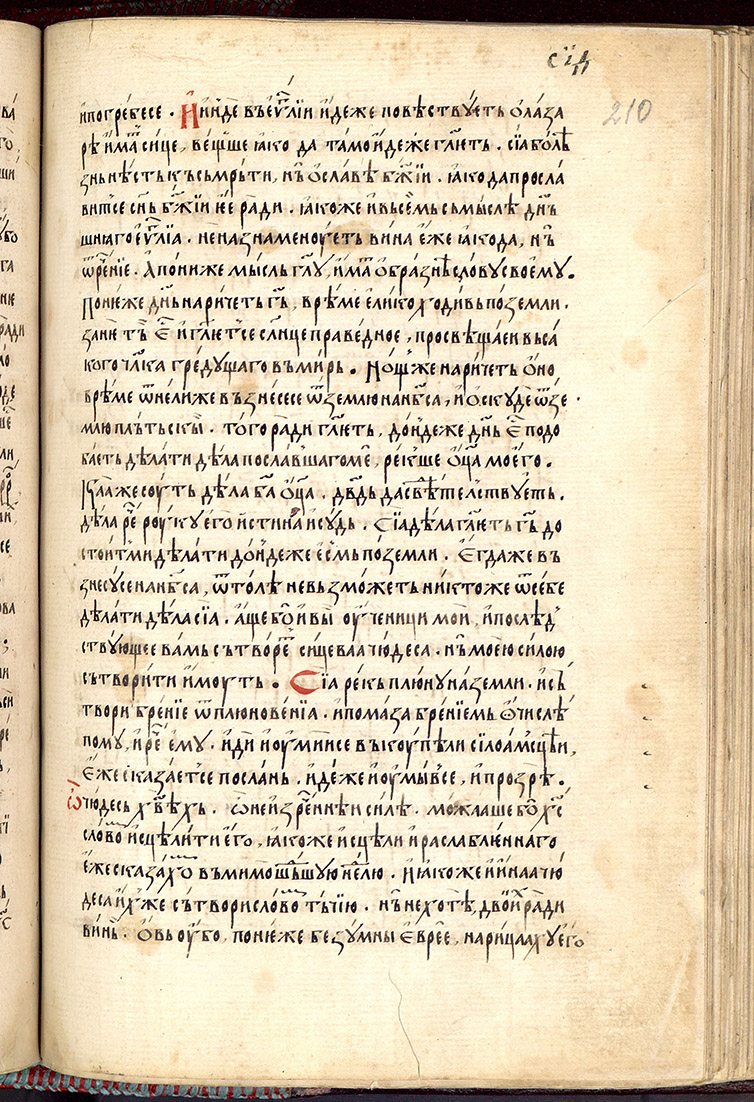 сїд
210
ипогребесе · И инде въ еѵⷢ҇лїи идеже повѣствꙋеть ѻ лаза
рѣ имат̾ сице, вещꙿше ꙗко да тамо идеже гл҃еть · сїа болѣ
знь нѣсть къ съмрьти, нъ ѻ славѣ бж҃їи · ꙗко да просла
витсе сн҃ь бж҃їи ее ради · ꙗкоже и въ семь съмыслѣ дн҃ъ
шнꙗго еѵⷢ҇лїа · не назнаменꙋеть вина еже ꙗко да, нъ
ѿрⷱ҇енїе · А понꙗже мысль гл҃у, имат̾ ѻбразнѣ словꙋ своемꙋ ·
Понеже дн҃ь наричеть гь҃, врѣме елико ходивь по земли ·
зане тъ е҃ и гл҃етсе сл҃нце праведное, просвѣщаеи въса
кого чл҃ка гредꙋщаго въ мирь · Нощꙿже наричеть ѻно
врѣме ѿнелиже възнесесе ѿ землю на нб҃са, и ѻскꙋде ѿ зе
млю плътьскы · того ради гл҃еть, дондеже дн҃ь е҃ подо
баеть дѣлати дѣла пославшаго ме, рекꙿше ѻц҃а моего ·
Каꙗ же соуть дѣла ба҃ ѻц҃а · дв҃дь да свѣтелствꙋеть ·
дѣла рⷱ҇е роукꙋ его истина и сꙋдь · Сїа дѣла гл҃еть гь҃ до
стоитꙿ ми дѣлати дондеже есмь по земли · Егда же въ
знесꙋсе на нб҃са, ѿтолѣ не възможеть никтоже ѿ себе
дѣлати дѣла сїа · аще бо и вы оученици мои, и послѣд
ствꙋющее вамь сътворе сицеваа чюдеса · нъ моею силою
сътворити имоуть · Сїа рекь плюнꙋ на земли · и съ
твори бренїе ѿ плюновенїа · и помаза бренїемь ѻчи слѣ
помꙋ, и рⷱ҇е емꙋ · иди и оумыисе въ коупѣли силоамсцѣи,
еже сказаетсе послань · идеже и оумывсе, и прозрѣ ·
Ѽ чюдесь хв҃ѣхь · ѡ неизрⷱ҇еннѣи силѣ · можааше бо хс҃
слово исцѣлити его, ꙗкоже исцѣли и раслабленнаго
еже сказахо въ мимошꙿшꙋю нⷣелю · И ꙗкоже и инаа чю
деса ихꙿже сътвори слово тъчїю · нъ не хотѣ, двоих ради
винь · Ѻвь оубо, понеже безꙋмны евреѐ, нарицаахꙋ его